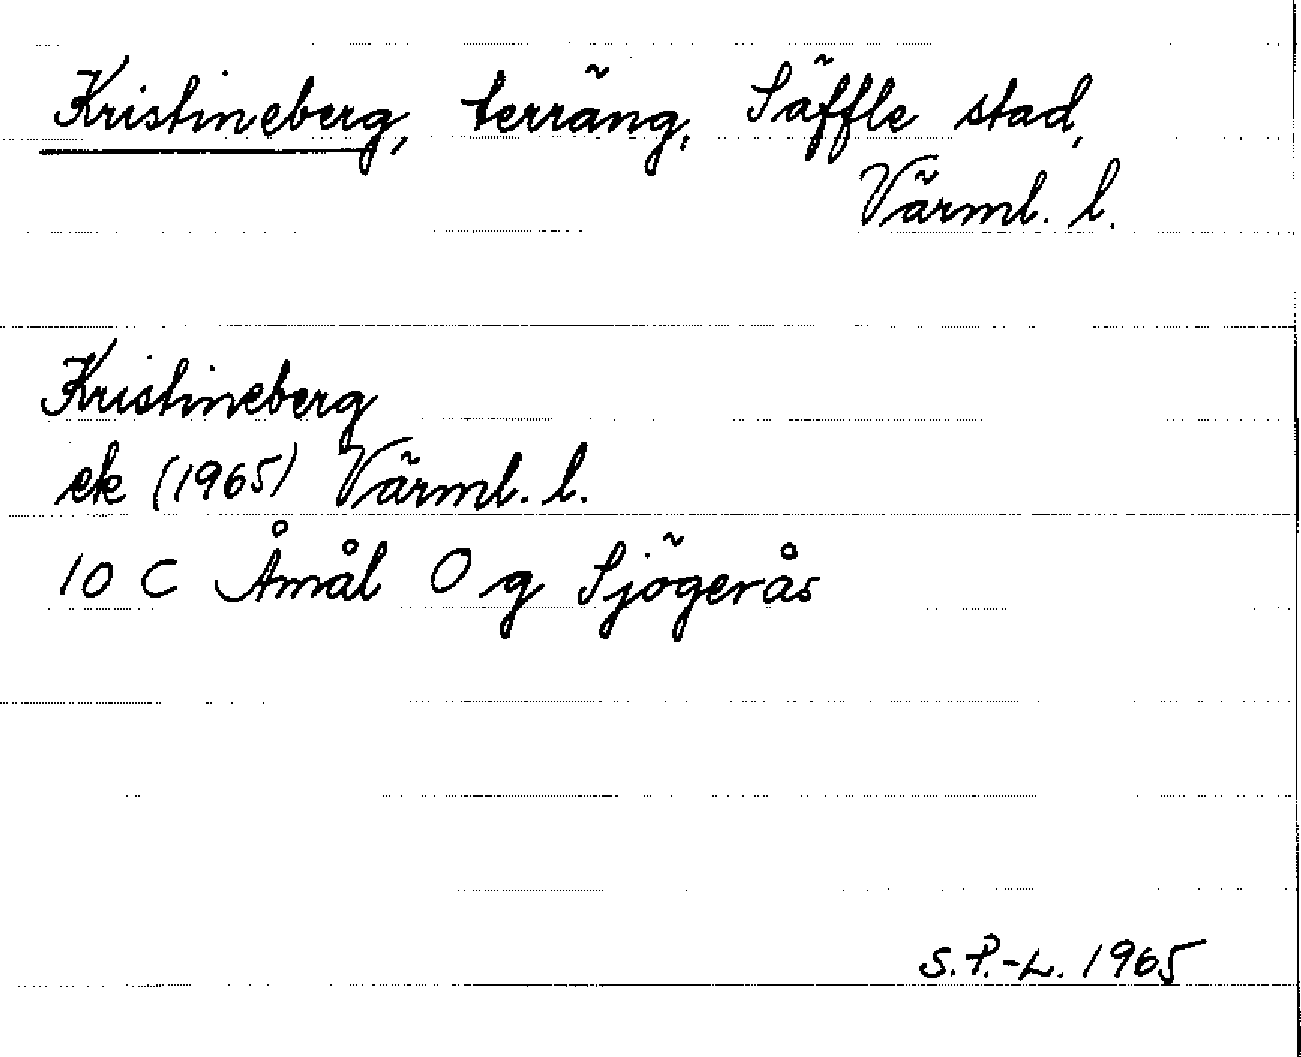 Kristineberg, terräng, Säffle stad,
Värml. l.
Kristineberg
ek (1965) Värml. l.
10 C Åmål O g Sjögerås
S.P.-L. 1965